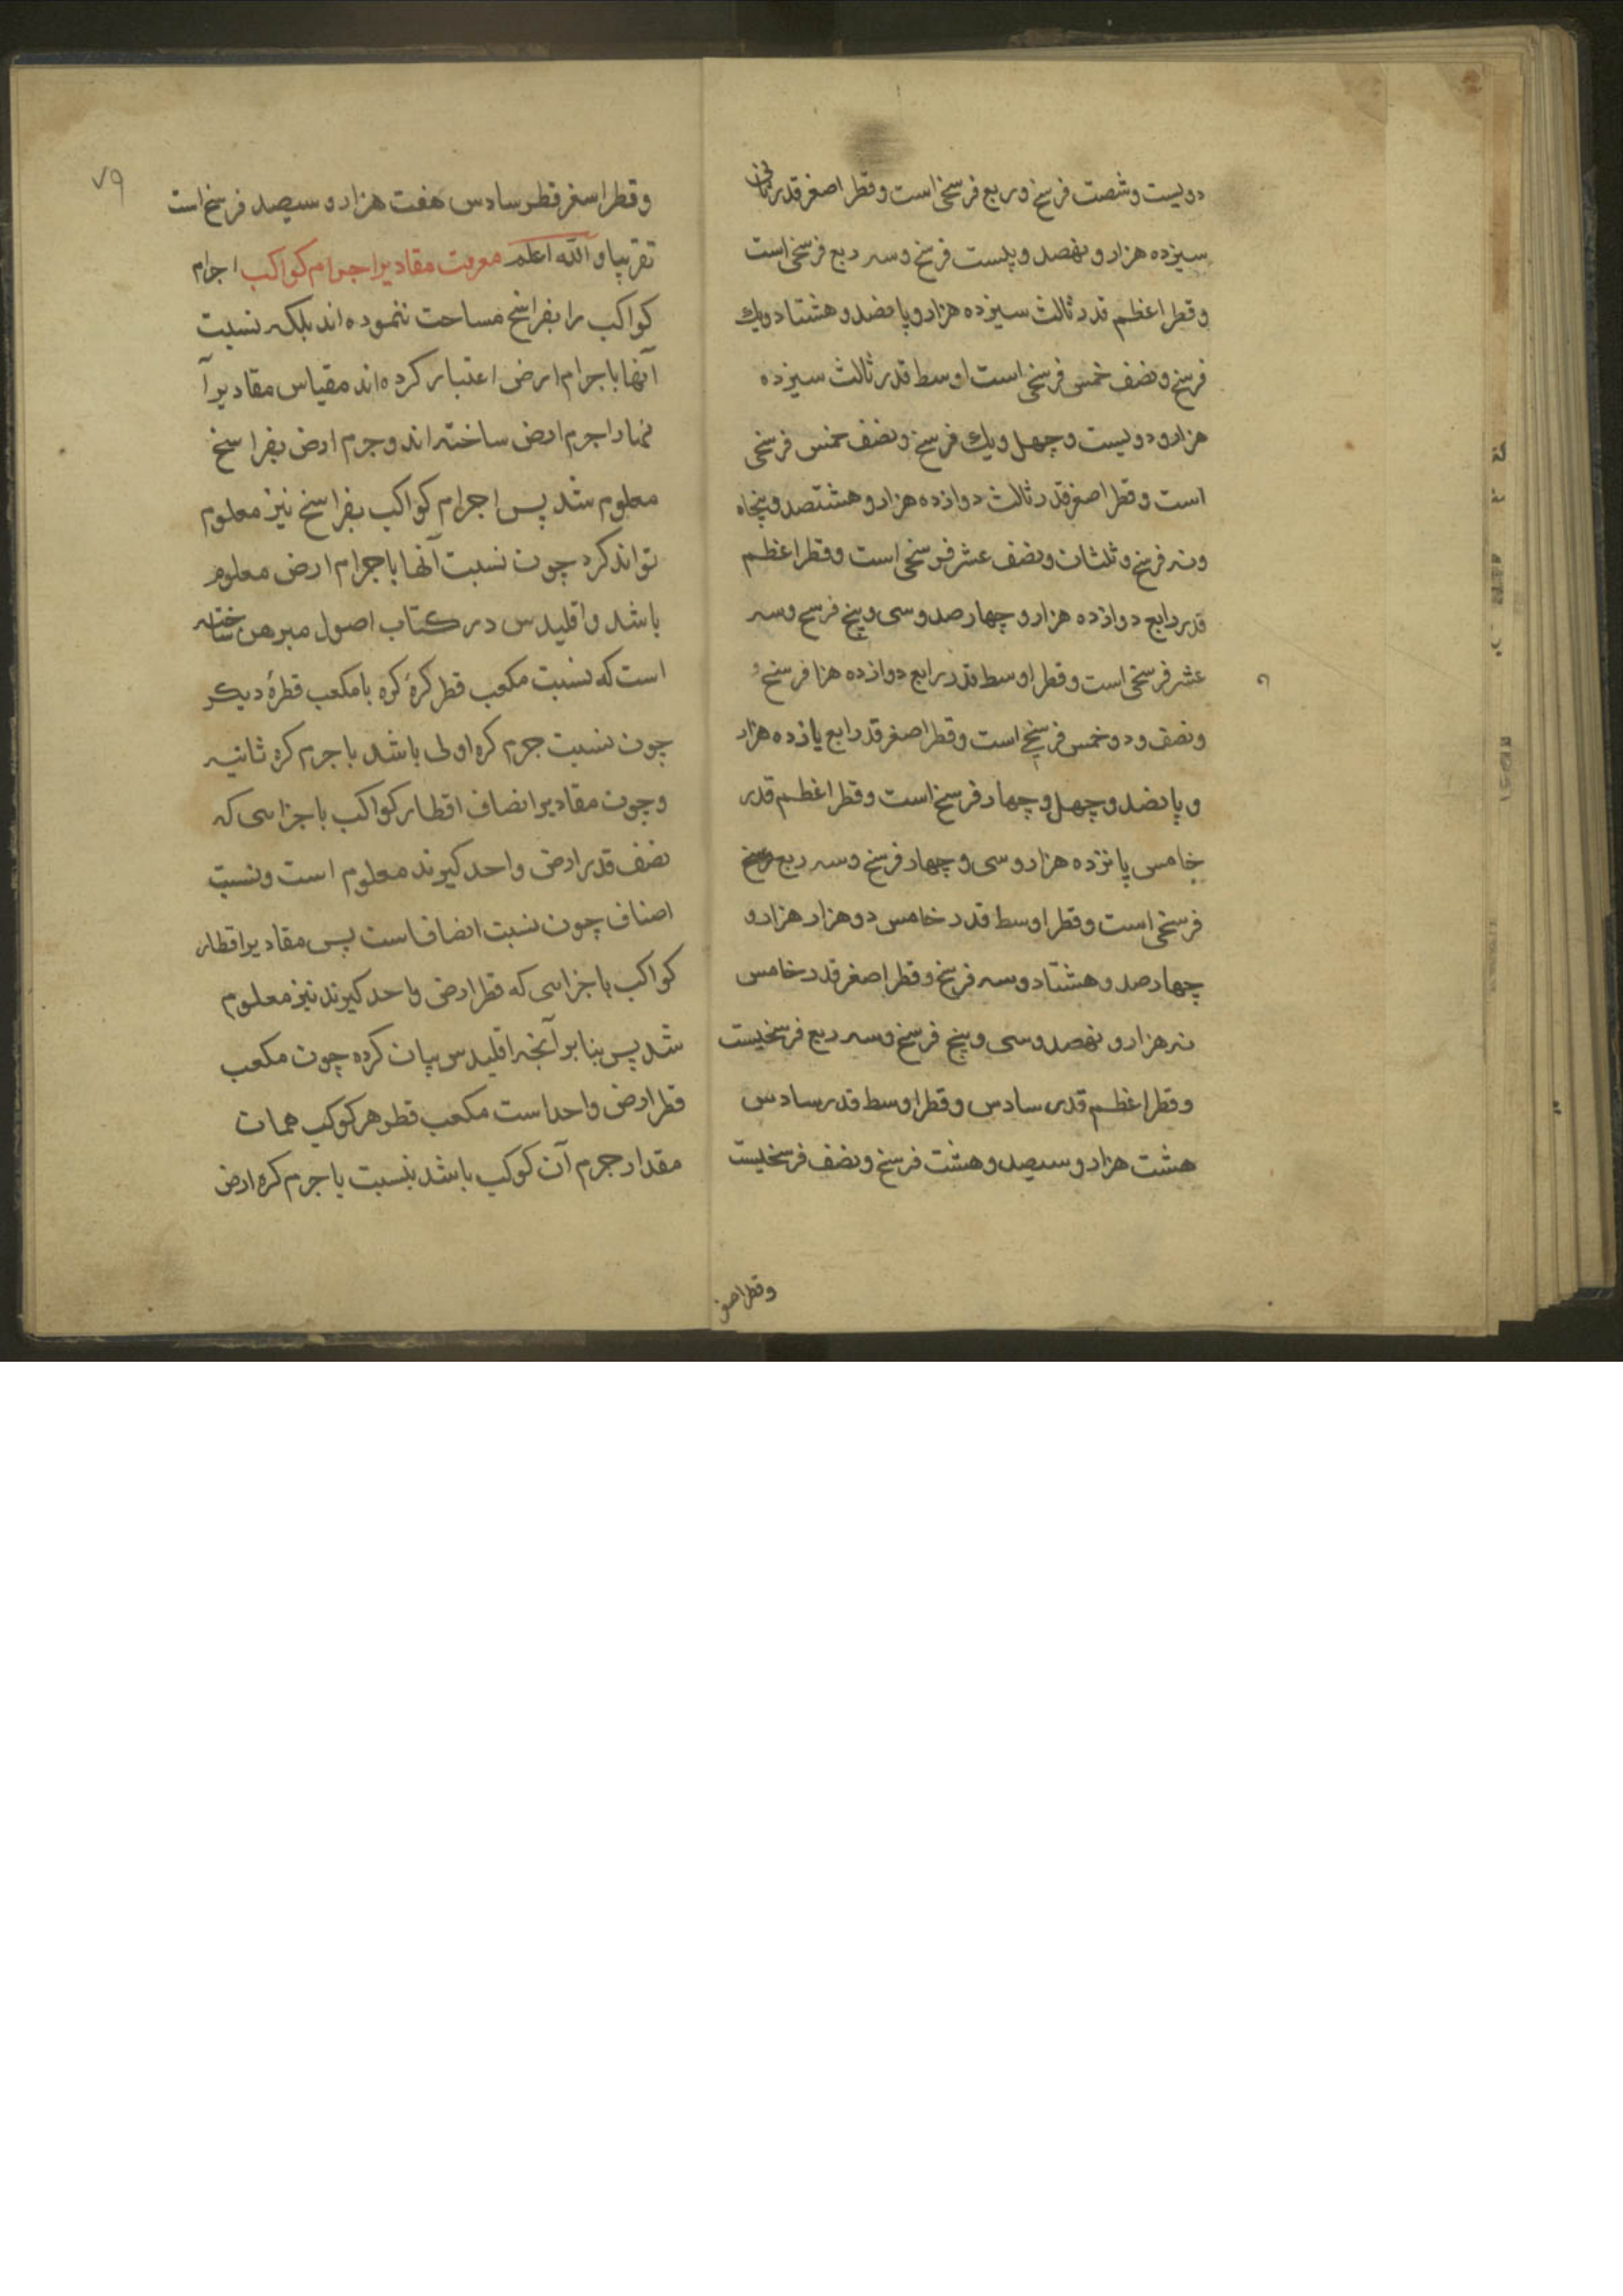 دویست و شصت فرسخ و ربع فرسخی است و قطر اصغر قدر ثانی
سیزده هزار و نهصد و بیست فرسخ و سه ربع فرسخی است
و قطر اعظم قدر ثالث سیزده هزار و پانصد و هشتاد و یک
فرسخ و نصف خمس فرسخی است اوسط قدر ثالث سیزده
هزار و دویست و چهل و یک فرسخ و نصف خمس فرسخی
است و قطر اصغر قدر ثالث دوازده هزار و هشتصد و پنجاه
و نه فرسخ و ثلثان و نصف عشر فرسخی است و قطر اعظم
قدر رابع دوازده هزار و چهارصد و سی و پنج فرسخ و سه
عشر فرسخی است و قطر اوسط قدر رابع دوازده هزا فرسخ و
و نصف و دو خمس فرسخی است و قطر اصغر قدر رابع یازده هزار
و پانصد و چهل و چهار فرسخ است و قطر اعظم قدر
خامس پانزده هزار و سی و چهار فرسخ و سه ربع
فرسخی است و قطر اوسط قدر خامس دو هزار هزار و
چهارصد و هشتاد و سه فرسخ و قطر اصغر قدر خامس
نه هزار و نهصد و سی و پنج فرسخ و سه ربع فرسخیست
و قطر اعظم قدر سادس و قطر اوسط قدر سادس
هشت هزار و سیصد و هشت فرسخ و نصف فرسخیست
و قطر اصغر
۷۹
و قطر اسغر قطر سادس هفت هزار و سیصد فرسخ است
تقریبا و الله اعلم معرفت مقادیر اجرام کواکب اجرام
کواکب را بفراسخ مساحت ننموده اند بلکه نسبت
آنها با جرام ارض اعتبار کرده اند مقیاس مقادیر آ
نها را جرم ارض ساخته اند و جرم ارض بفراسخ
معلوم شد پس اجرام کواکب بفراسخ نیز معلوم
تواند کرد چون نسبت آنها با جرام ارض معلوم
باشد و اقلیدس در کتاب اصول مبرهن ساخته
است که نسبت مکعب قطر کرهٔ کره با مکعب قطرهٔ دیگر
چون نسبت جرم کره اولی باشد با جرم کره ثانیه
و چون مقادیر انصاف اقطار کواکب با جزایی که
نصف قدر ارض واحد گیرند معلوم است و نسبت
اصناف چون نسبت انصاف است پس مقادیر اقطار
کواکب با جزایی که قطر ارض واحد گیرند نیز معلوم
شد پس بنا بر آنچه اقلیدس بیان کرده چون مکعب
قطر ارض واحد است مکعب قطر هر کوکب همان
مقدار جرم آن کوکب باشد بنسبت با جرم کره ارض